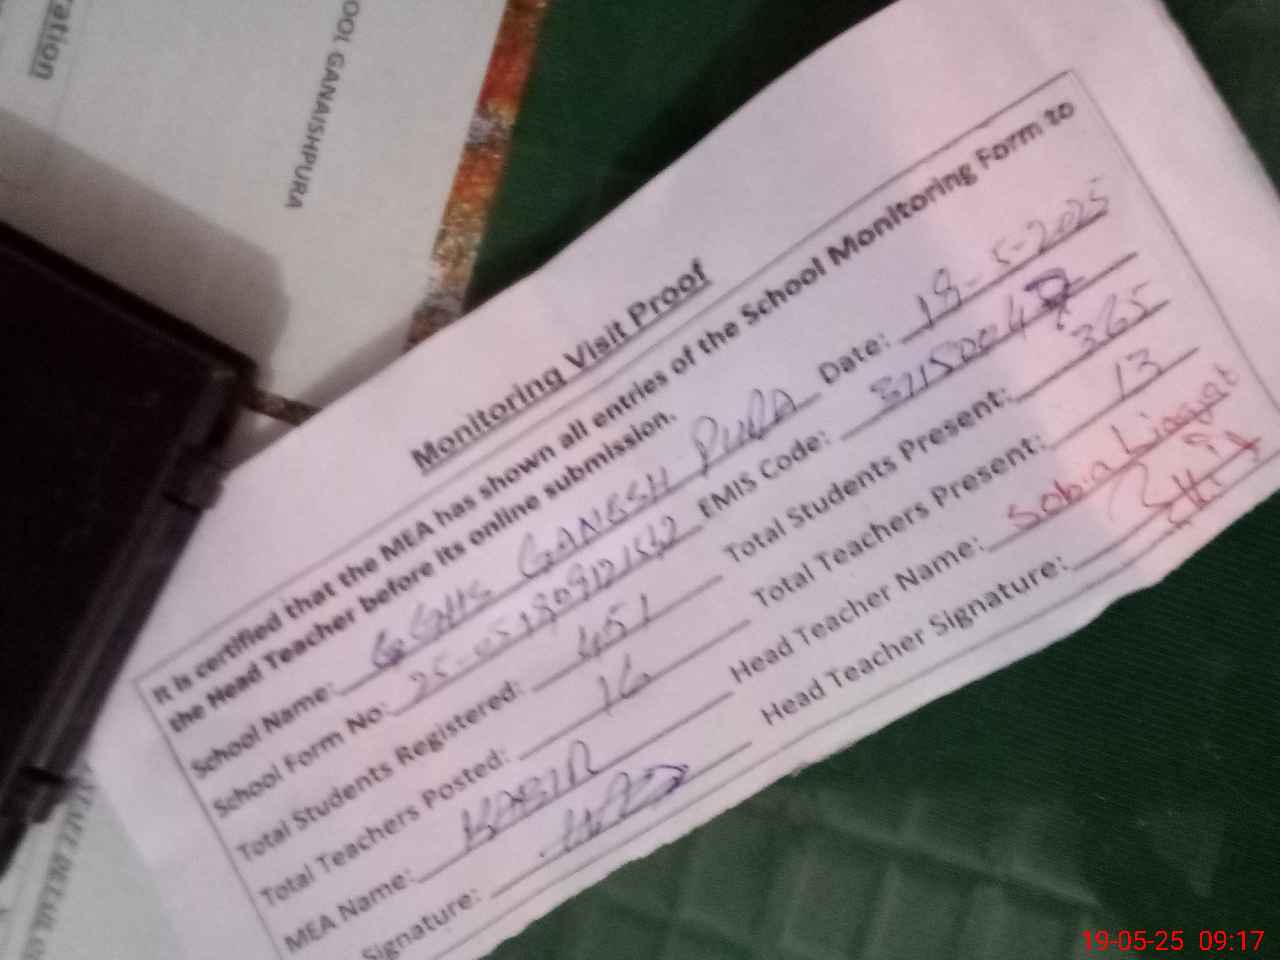 ration
OOL GANAISHPURA
Monitoring Visit Proof
It is certified that the MEA has shown all entries of the School Monitoring Form to
the Head Teacher before its online submission.
School Name: GGHS GANESH PURA Date: 19-5-2025
School Form No: EMIS Code:
Total Students Registered: 451 Total Students Present: 365
Total Teachers Posted: 16 Total Teachers Present: 13
MEA Name: KABIR Head Teacher Name: Sobia Liaqat
Signature: Head Teacher Signature:
19-05-25 09:17